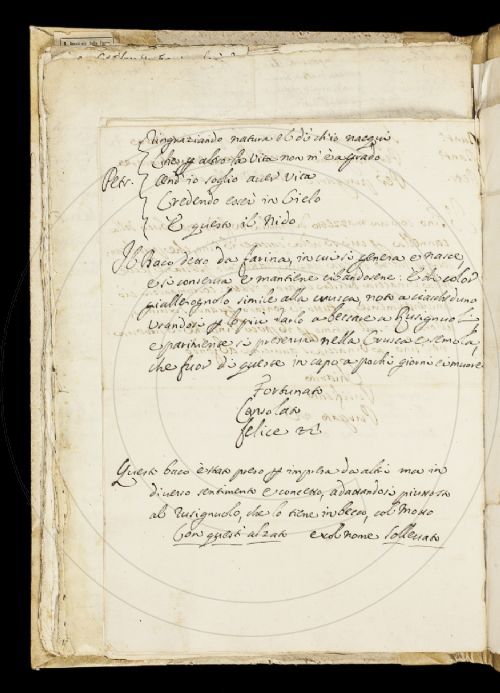 Ringraziando natura e 'l dì ch'io nacqui
Che p altro la vita non m'è a grado
Petr. Ond'io soglio aver vita
Credendo esser in Cielo
È questo il Nido
Il Baco detto da farina, in cui si genera e nasce,
e si conserva e mantiene cibandosene: È di color
giallerognolo simile alla crusca, noto a ciascheduno
usandosi p lo più darlo a beccare a Rusignuoli
e parimente si preserva nella Crusca e semola,
che fuor di queste in capo a pochi giorni si muore
Fortunato
Consolato
felice
Questi baco è stato preso p impresa da altri ma in
diverso sentimento e concetto, adattandosi piuttosto
al Rusignuolo, che lo tiene in becco, col Motto
Con questi alzato e col nome Sollevato